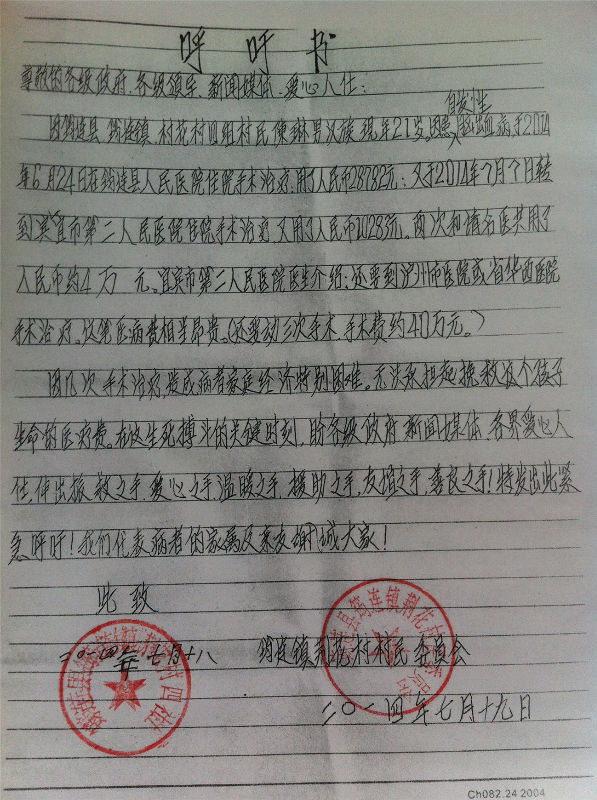 呼吁书
尊敬的各级政府、各级领导、新闻媒体、爱心人仕:
自发性
因筠连县筠连镇村花村四组村民陳琳男汉族现年21岁。因患脑出血病于2014
年6月24日在筠连县人民医院住院手术治疗,用了人民币28782元;又于2014年7月7日转
到宾宜市第二人民医院住院手术治疗,又用了人民币10283元。两次和请名医共用了
人民币约4万元。宜宾市第二人民医院医生介绍:还要到泸州市医院或省华西医院
手术治疗。这笔医病费相当昂贵。(还要动三次手术,手术费约40万元。)
因几次手术治疗,造成病者家庭经济特别困难。无法承担起挽救这个孩子
生命的医疗费。在这生死搏斗的关键时刻,盼各级政府、新闻媒体、各界爱心人
仕,伸出振救之手、爱心之手、温暖之手、援助之手、友谊之手、善良之手!特发出此紧
急呼吁!我们代表病者的家属及亲友叩诚大家!
此致
二0一四年七月十八
筠连镇荆花村村民委员会
二〇一四年七月十九日
筠连镇荆花村
村四组
Ch082.24 2004